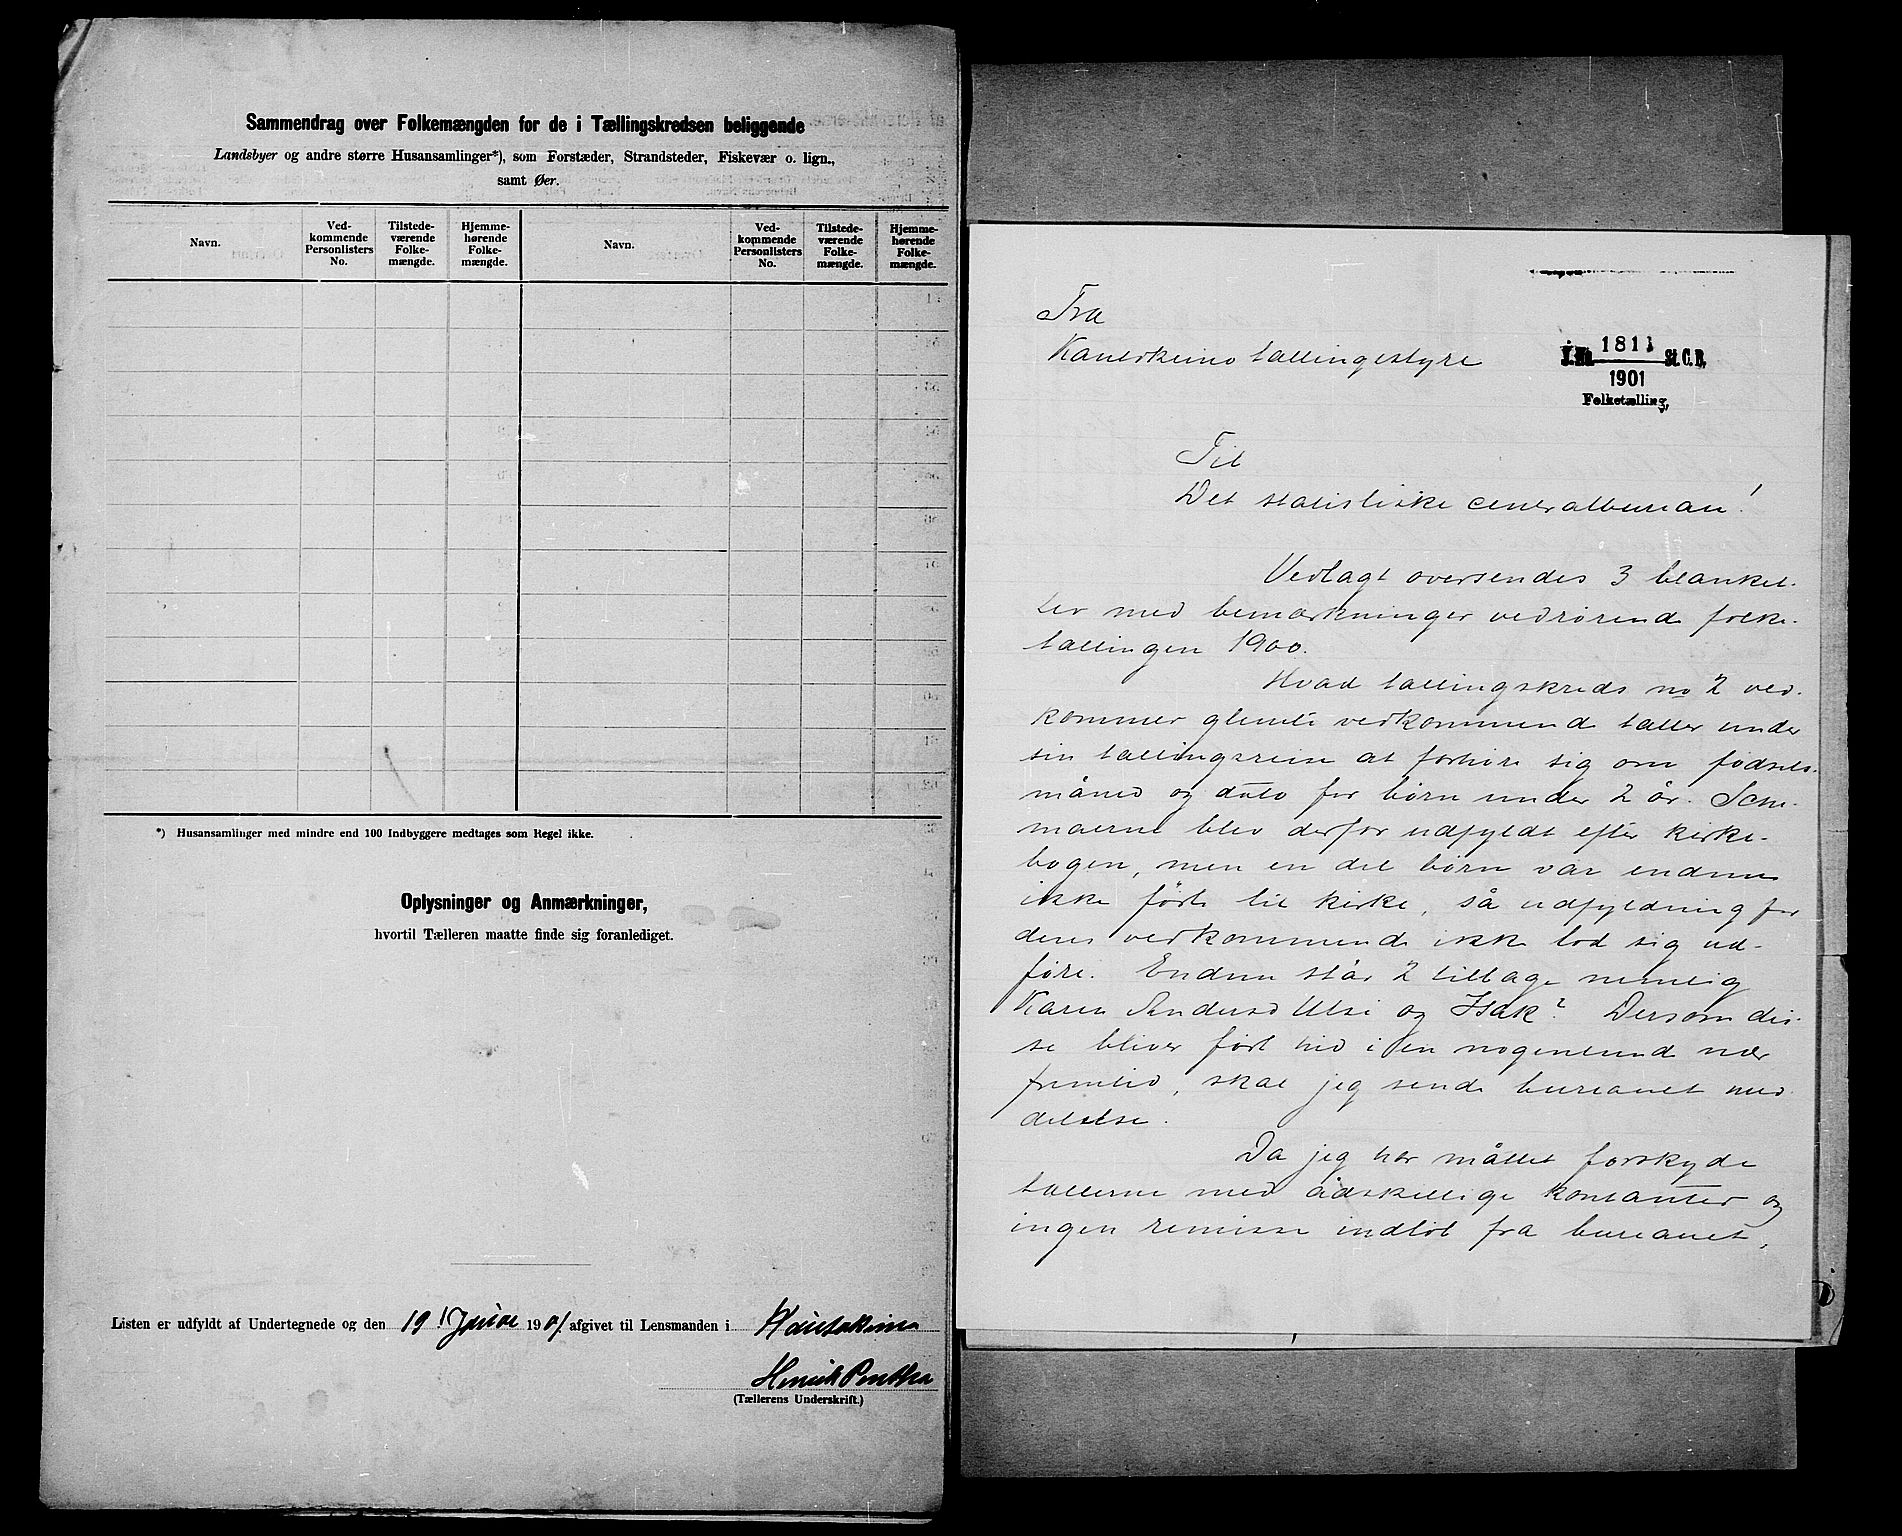 Sammendrag over Folkemængden for de i Tællingskredsen beliggende
Landsbyer og andre større Husansamlinger*), som Forstæder, Strandsteder, Fiskevær o. lign.,
samt Øer.
Navn.
Ved-
kommende
Personlisters
No.
Tilstede-
værende
Folke-
mængde.
Hjemme-
hørende
Folke-
mængde.
Navn.
Ved-
kommende
Personlisters
No.
Tilstede-
værende
Folke-
mængde.
Hjemme-
hørende
Folke-
mængde.
*) Husansamlinger med mindre end 100 Indbyggere medtages som Regel ikke.
Oplysninger og Anmærkninger,
hvortil Tælleren maatte finde sig foranlediget.
Listen er udfyldt af Undertegnede og den 19 1901 afgivet til Lensmanden i Koutokeino
Henrik Penttha
(Tællerens Underskrift.)
Fra
Koutokeino tællingsstyre
J.No. 1811 St.C.B.
1901
Folketælling,
Til
Det statistiske centralbureau!
Vedlagt oversendes 3 blanket-
ter med bemærkninger vedrørende folke-
tællingen 1900.
Hvad tællingskreds no 2 ved-
kommer glemte vedkommende tæller under
sin tællingsreise at forhøre sig om fødsels-
måned og dato for børn under 2 år. Sche-
maerne blev derfor udfyldt efter kirke-
bogen, men en del børn var endnu
ikke ført til kirke, så udfyldning for
deres vedkommende ikke lod sig ud-
føre. Endnu står 2 tilbage nemlig
Karen Andersd Utsi og Isak? Dersom dis-
se bliver ført hid i en nogenlunde nær
fremtid, skal jeg sende bureauet med
delelse.
Da jeg har måttet forskyde
tællerne med adskillige kontanter og
ingen remisse indløb fra bureauet,